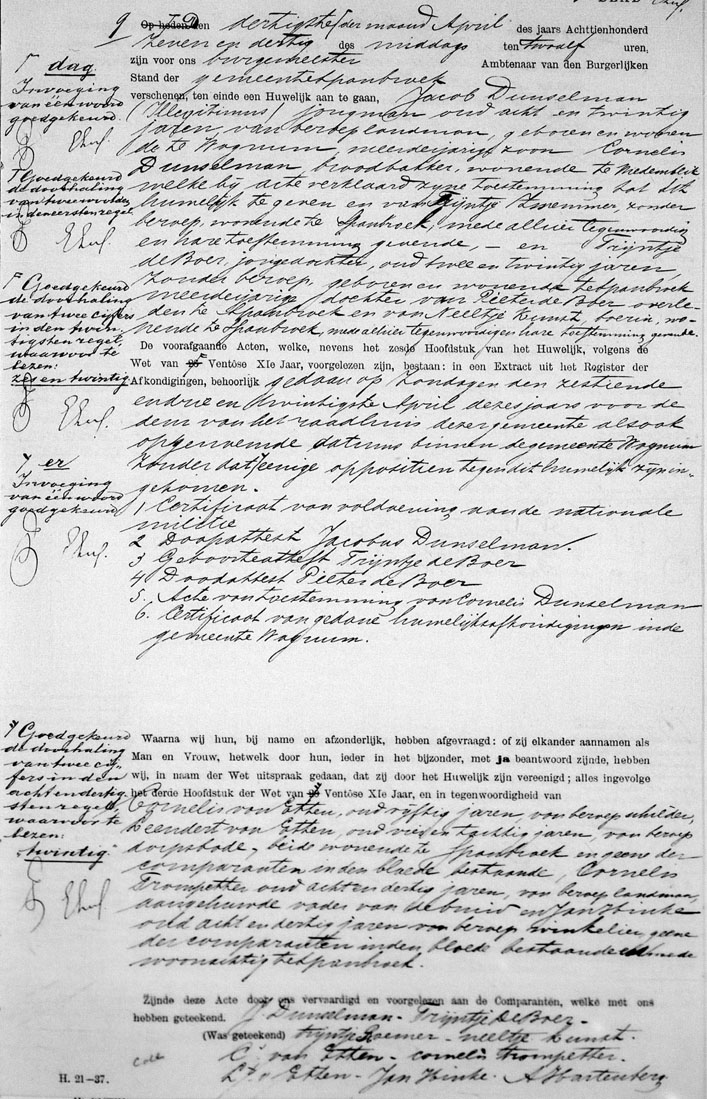 9 Op heden den dertigsten der maand April des jaars Achttienhonderd
zeven en dertig des middags ten twaalf uren,
zijn voor ons burgemeester Ambtenaar van den Burgerlijken
Stand der gemeente Spanbroek
verschenen, ten einde een Huwelijk aan te gaan, Jacob Dunselman
(Illegitimus) jongman oud acht en twintig
jaren, van beroep landman, geboren en wonen
de te Wognum meerderjarige zoon Cornelis
Dunselman broodbakker, wonende te Medemblik
welke bij acte verklaard zyne toestemming tot dit
huwelijk te geven en van Trijntje zonder
beroep, wonende te Spanbroek, mede alhier tegenwoordig
en hare toestemming gevende, — en Trijntje
de Boer, jongedochter, oud twee en twintig jaren,
zonder beroep, geboren en wonende te Spanbroek
meerderjarige dochter van Pieter de Boer overle-
den te Spanbroek en van Neeltje Kunst, boerin, wo-
nende te Spanbroek, mede alhier tegenwoordig en hare toestemming gevende.
De voorafgaande Acten, welke, nevens het zesde Hoofdstuk van het Huwelijk, volgens de
Wet van Ventôse XIe Jaar, voorgelezen zijn, bestaan: in een Extract uit het Register der
Afkondigingen, behoorlijk gedaan op Zondagen den zestiende
en drie en twintigste April dezes jaars voor de
deur van het raadhuis dezer gemeente alsook
opgenoemde datums binnen de gemeente Wognum
zonder dat eenige oppositien tegen dit huwelijk zijn in-
gekomen.
1 Certificaat van voldoening aan de nationale
militie
2 Doopattest Jacobus Dunselman.
3 Geboorteattest Trijntje de Boer
4 Doodattest Pieter de Boer
5. Acte van toestemming van Cornelis Dunselman
6. Certificaat van gedane huwelijksafkondigingen in de
gemeente Wognum.
dag
Invoeging
van één woord
goedgekeurd.
Goedgekeurd
de doorhaling
van twee woorden
in den eersten regel
Goedgekeurd
de doorhaling
van twee cijfers
in den twin-
tigsten regel,
waarvoor te
lezen:
zes en twintig
er
Invoeging
van één woord
goedgekeurd
Goedgekeurd
de doorhaling
van twee cij-
fers in den
acht en dertig-
sten regel
waarvoor te
lezen:
twintig
Waarna wij hun, bij name en afzonderlijk, hebben afgevraagd: of zij elkander aannamen als
Man en Vrouw, hetwelk door hun, ieder in het bijzonder, met ja beantwoord zijnde, hebben
wij, in naam der Wet uitspraak gedaan, dat zij door het Huwelijk zijn vereenigd; alles ingevolge
het derde Hoofdstuk der Wet van Ventôse XIe Jaar, en in tegenwoordigheid van
Cornelis van Etten, oud vijftig jaren, van beroep schilder,
Leendert van Etten, oud vier en tachtig jaren, van beroep
dorpsbode, beide wonende te Spanbroek en geen der
comparanten in den bloede bestaande, Cornelis
Trompetter oud acht en dertig jaren, van beroep landman,
aangehuwde vader van de bruid en Jan Hinke
oud acht en dertig jaren van beroep winkelier, geene
der comparanten in den bloede bestaande mede
woonachtig te Spanbroek.
Zijnde deze Acte door ons vervaardigd en voorgelezen aan de Comparanten, welke met ons
hebben geteekend. J. Dunselman - Trijntje De Boer -
(Was geteekend) - neeltje kunst.
C. van Etten - cornelis trompetter.
L. v Etten - Jan Hinke. A. Hartenberg
H. 21-37.